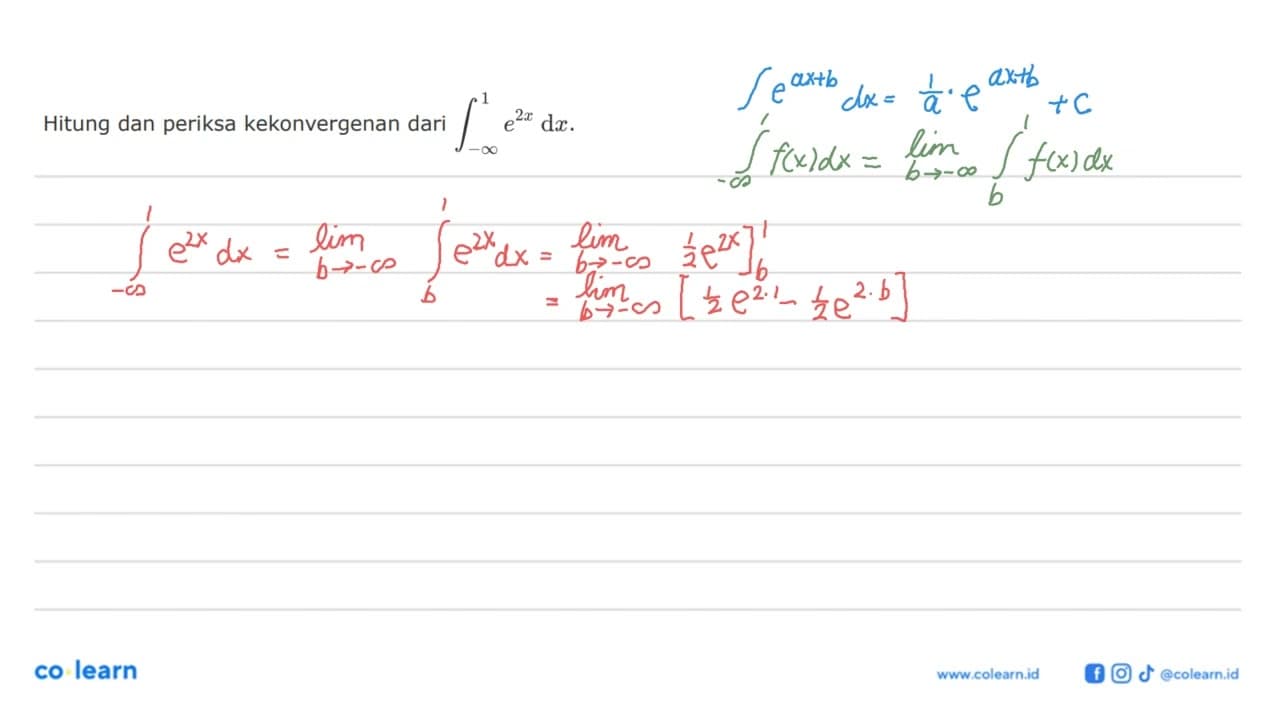 ∫e^{ax+b} dx = 1/a · e^{ax+b} + c
Hitung dan periksa kekonvergenan dari ∫_{-∞}^{1} e^{2x} dx.
∫_{-∞}^{1} f(x)dx = lim_{b→-∞} ∫_{b}^{1} f(x)dx
∫_{-∞}^{1} e^{2x} dx = lim_{b→-∞} ∫_{b}^{1} e^{2x} dx = lim_{b→-∞} 1/2 e^{2x}]_{b}^{1}
= lim_{b→-∞} [1/2 e^{2.1} - 1/2 e^{2.b}]
co learn
www.colearn.id @colearn.id